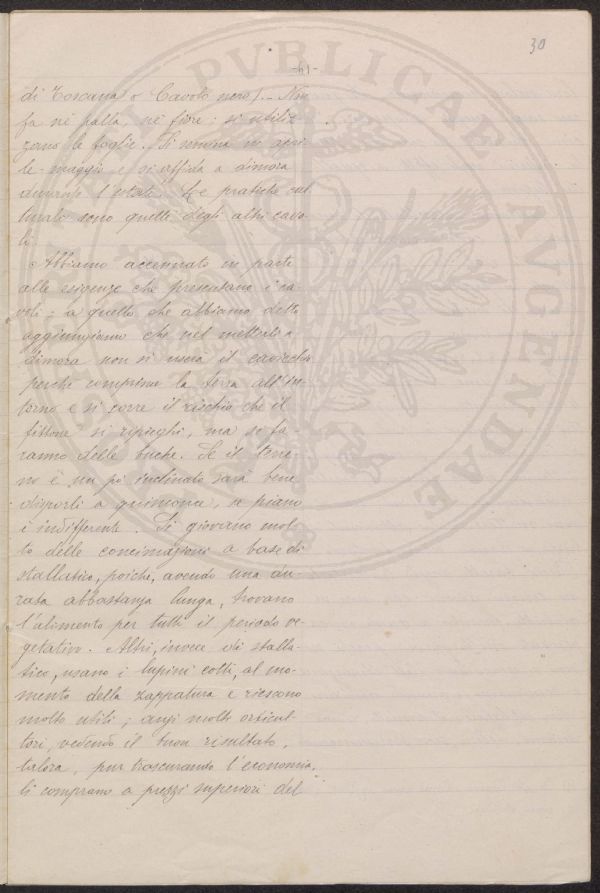 30
-61-
di Toscana o Cavolo nero). - Non
fa nè palla, nè fiore: si utiliz
zano le foglie. Si semina in apri
le-maggio e si affida a dimora
durante l'estate. Le pratiche cul
turali sono quelle degli altri cavo
li.
Abbiamo accennato in parte
alle esigenze che presentano i ca-
voli; a quello che abbiamo detto
aggiungiamo che nel metterli a
dimora non si userà il cavicchio
perchè comprime la terra all'in-
torno e si corre il rischio che il
fittone si ripieghi, ma si fa-
ranno delle buche. Se il terre-
no è un po' inclinato sarà bene
disporli a quinconce, se piano
è indifferente. Si giovano mol
to delle concimazioni a base di
stallatico, poichè, avendo una du-
rata abbastanza lunga, trovano
l'alimento per tutto il periodo ve-
getativo. Altri, invece di stalla-
tico, usano i lupini cotti, al mo-
mento della zappatura e riescono
molto utili; anzi molti orticul-
tori, vedendo il buon risultato,
talora, pur trascurando l'economia,
li comprano a prezzi superiori del
PVBLICAE AVGENDAE